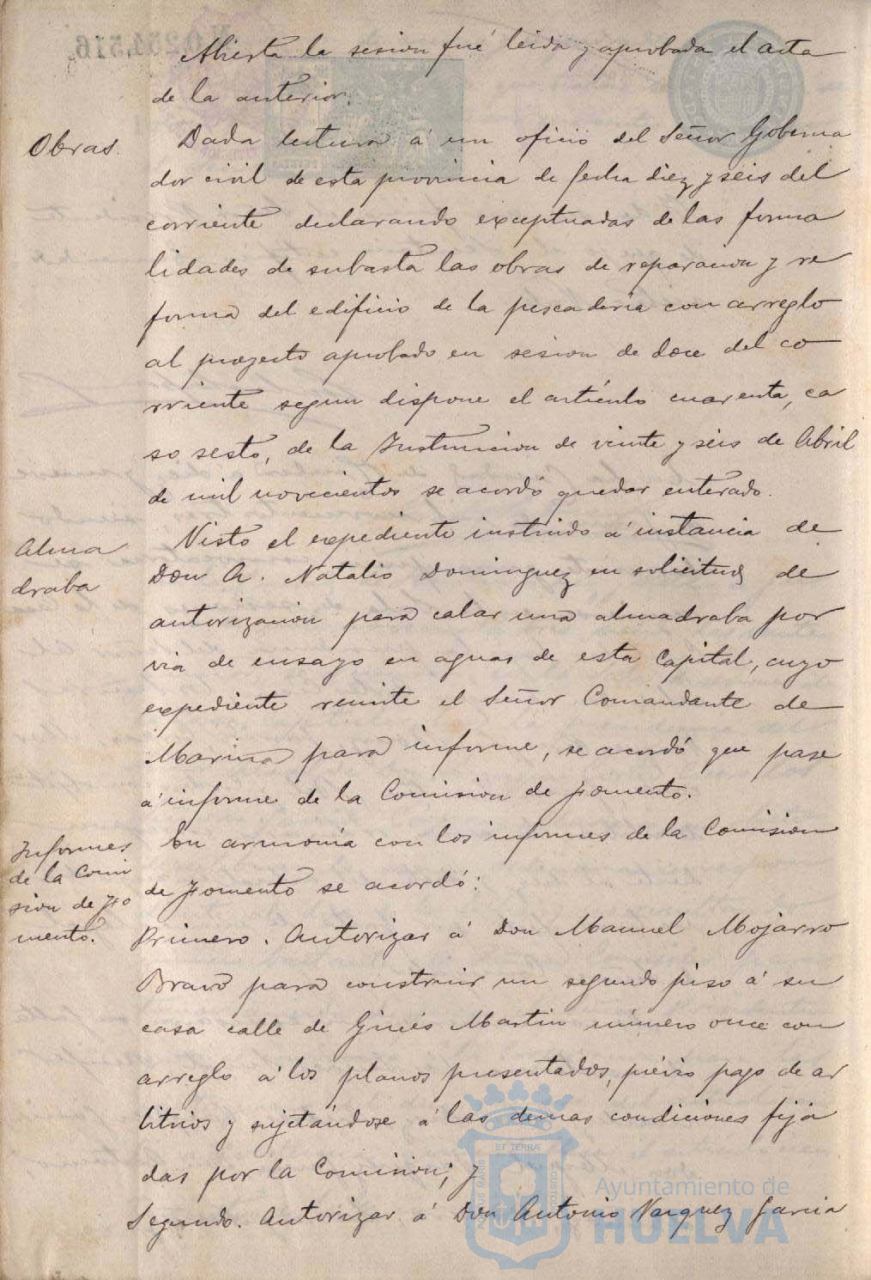 Abierta la sesion fué leida y aprobada el acta
de la anterior.
Obras.
Dada lectura á un oficio del Señor Goberna
dor civil de esta provincia de fecha diez y seis del
corriente declarando exceptuadas de las forma
lidades de subasta las obras de reparacion y re
forma del edificio de la pescadería con arreglo
al proyecto aprobado en sesion de doce del co
rriente segun dispone el artículo cuarenta, ca
so sesto, de la Instruccion de veinte y seis de Abril
de mil novecientos se acordó quedar enterado.
Alma
draba
Visto el expediente instruido á instancia de
Don A. Natalio Dominguez en solicitud de
autorizacion para calar una almadraba por
via de ensayo en aguas de esta Capital, cuyo
expediente remite el Señor Comandante de
Marina para informe, se acordó que pase
á informe de la Comision de fomento.
Informes
de la Comi
sion de fo
mento.
En armonía con los informes de la Comision
de fomento se acordó:
Primero. Autorizar á Don Manuel Mojarro
Bravo para construir un segundo piso á su
casa calle de Ginés Martin número once con
arreglo á los planos presentados, prévio pago de ar
bitrios y sujetándose á las demas condiciones fija
das por la Comision; y
Segundo. Autorizar á Don Antonio Vazquez Garcia
Ayuntamiento de
HUELVA